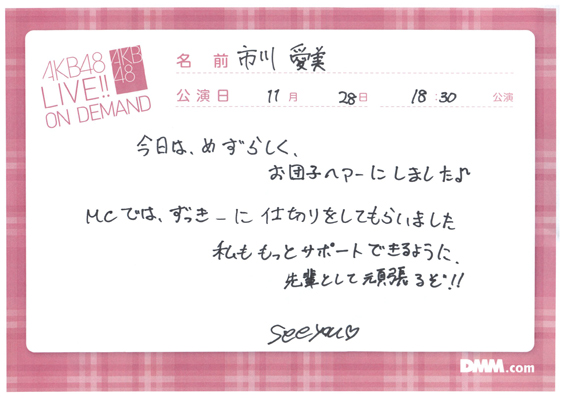 AKB48
LIVE!!
ON DEMAND
AKB
48
名 前 市川 愛美
公演日 11月 28日 18:30 公演
今日は、めずらしく、
お団子ヘアーにしました♪
MCでは、ずっきーに仕切りをしてもらいました
私ももっとサポートできるように、
先輩として頑張るぞ!!
see you♡
DMM.com